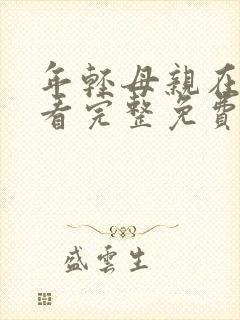 年輕母親在
看完整免費
盛雲生